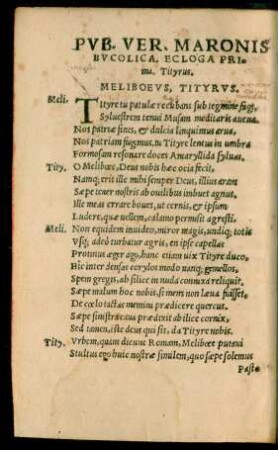 PVB. VER. MARONIS
BVCOLICA, ECLOGA PRI=
ma. Tityrus.
MELIBOEVS, TITYRVS.
Meli. Tityre tu patulæ recubans sub tegmine fagi,
Syluestrem tenui Musam meditaris auena.
Nos patriæ fines, & dulcia linquimus arua,
Nos patriam fugimus. tu Tityre lentus in umbra
Formosam resonare doces Amaryllida syluas.
Tity. O Melibœe, Deus nobis hæc ocia fecit,
Namq; erit ille mihi semper Deus, illius aram
Sæpe tener nostris ab ouilibus imbuet agnus.
Ille meas errare boues, ut cernis, & ipsum
Ludere, quæ uellem, calamo permisit agresti.
Meli. Non equidem inuideo, miror magis, undiq; totis
Vsq; adeò turbatur agris. en ipse capellas
Protinus æger ago, hanc etiam uix Tityre duco,
Hic inter densas corylos modo nanq; gemellos,
Spem gregis, ah silice in nuda connixa reliquit.
Sæpe malum hoc nobis, si mens non læua fuisset,
De cœlo tactas memini prædicere quercus.
Sæpe sinistra caua prædixit ab ilice cornix,
Sed tamen, iste deus qui sit, da Tityre nobis.
Tity. Vrbem, quam dicunt Romam, Melibœe putaui
Stultus ego huic nostræ similem, quo sæpe solemus
Pasto